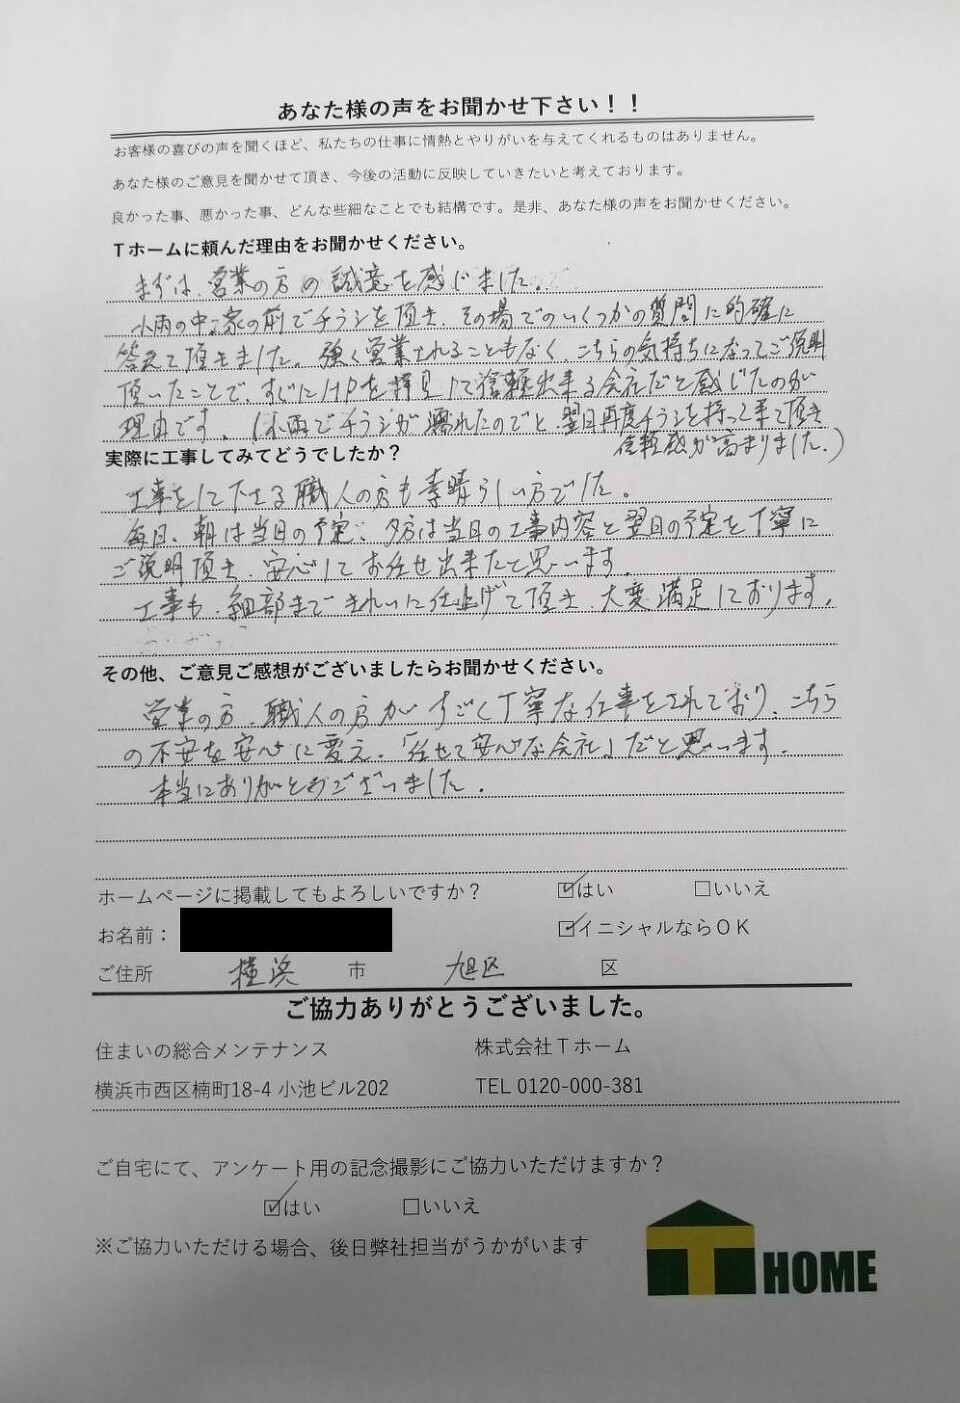 あなた様の声をお聞かせ下さい！！
お客様の喜びの声を聞くほど、私たちの仕事に情熱とやりがいを与えてくれるものはありません。
あなた様のご意見を聞かせて頂き、今後の活動に反映していきたいと考えております。
良かった事、悪かった事、どんな些細なことでも結構です。是非、あなた様の声をお聞かせください。
Ｔホームに頼んだ理由をお聞かせください。
まずは、営業の方の誠意を感じました。
小雨の中、家の前でチラシを頂き、その場でのいくつかの質問に的確に
答えて頂きました。強く営業されることもなく、こちらの気持ちになってご説明
頂いたことで、すぐにHPを拝見して信頼出来る会社だと感じたのが
理由です。(小雨でチラシが濡れたのでと、翌日再度チラシを持って来て頂き
信頼感が高まりました。)
実際に工事してみてどうでしたか？
工事をして下さる職人の方も素晴らしい方でした。
毎日、朝は当日の予定、夕方は当日の工事内容と翌日の予定を丁寧に
ご説明頂き、安心してお任せ出来たと思います。
工事も、細部まできれいに仕上げて頂き、大変満足しております。
その他、ご意見ご感想がございましたらお聞かせください。
営業の方、職人の方がすごく丁寧な仕事をされており、こちら
の不安を安心に変え、「任せて安心な会社」だと思います。
本当にありがとうございました。
ホームページに掲載してもよろしいですか？ ☑はい □いいえ
お名前： ☑イニシャルならＯＫ
ご住所 横浜 市 旭区 区
ご協力ありがとうございました。
住まいの総合メンテナンス 株式会社Ｔホーム
横浜市西区楠町18-4 小池ビル202 TEL 0120-000-381
ご自宅にて、アンケート用の記念撮影にご協力いただけますか？
☑はい □いいえ
※ご協力いただける場合、後日弊社担当がうかがいます
T HOME